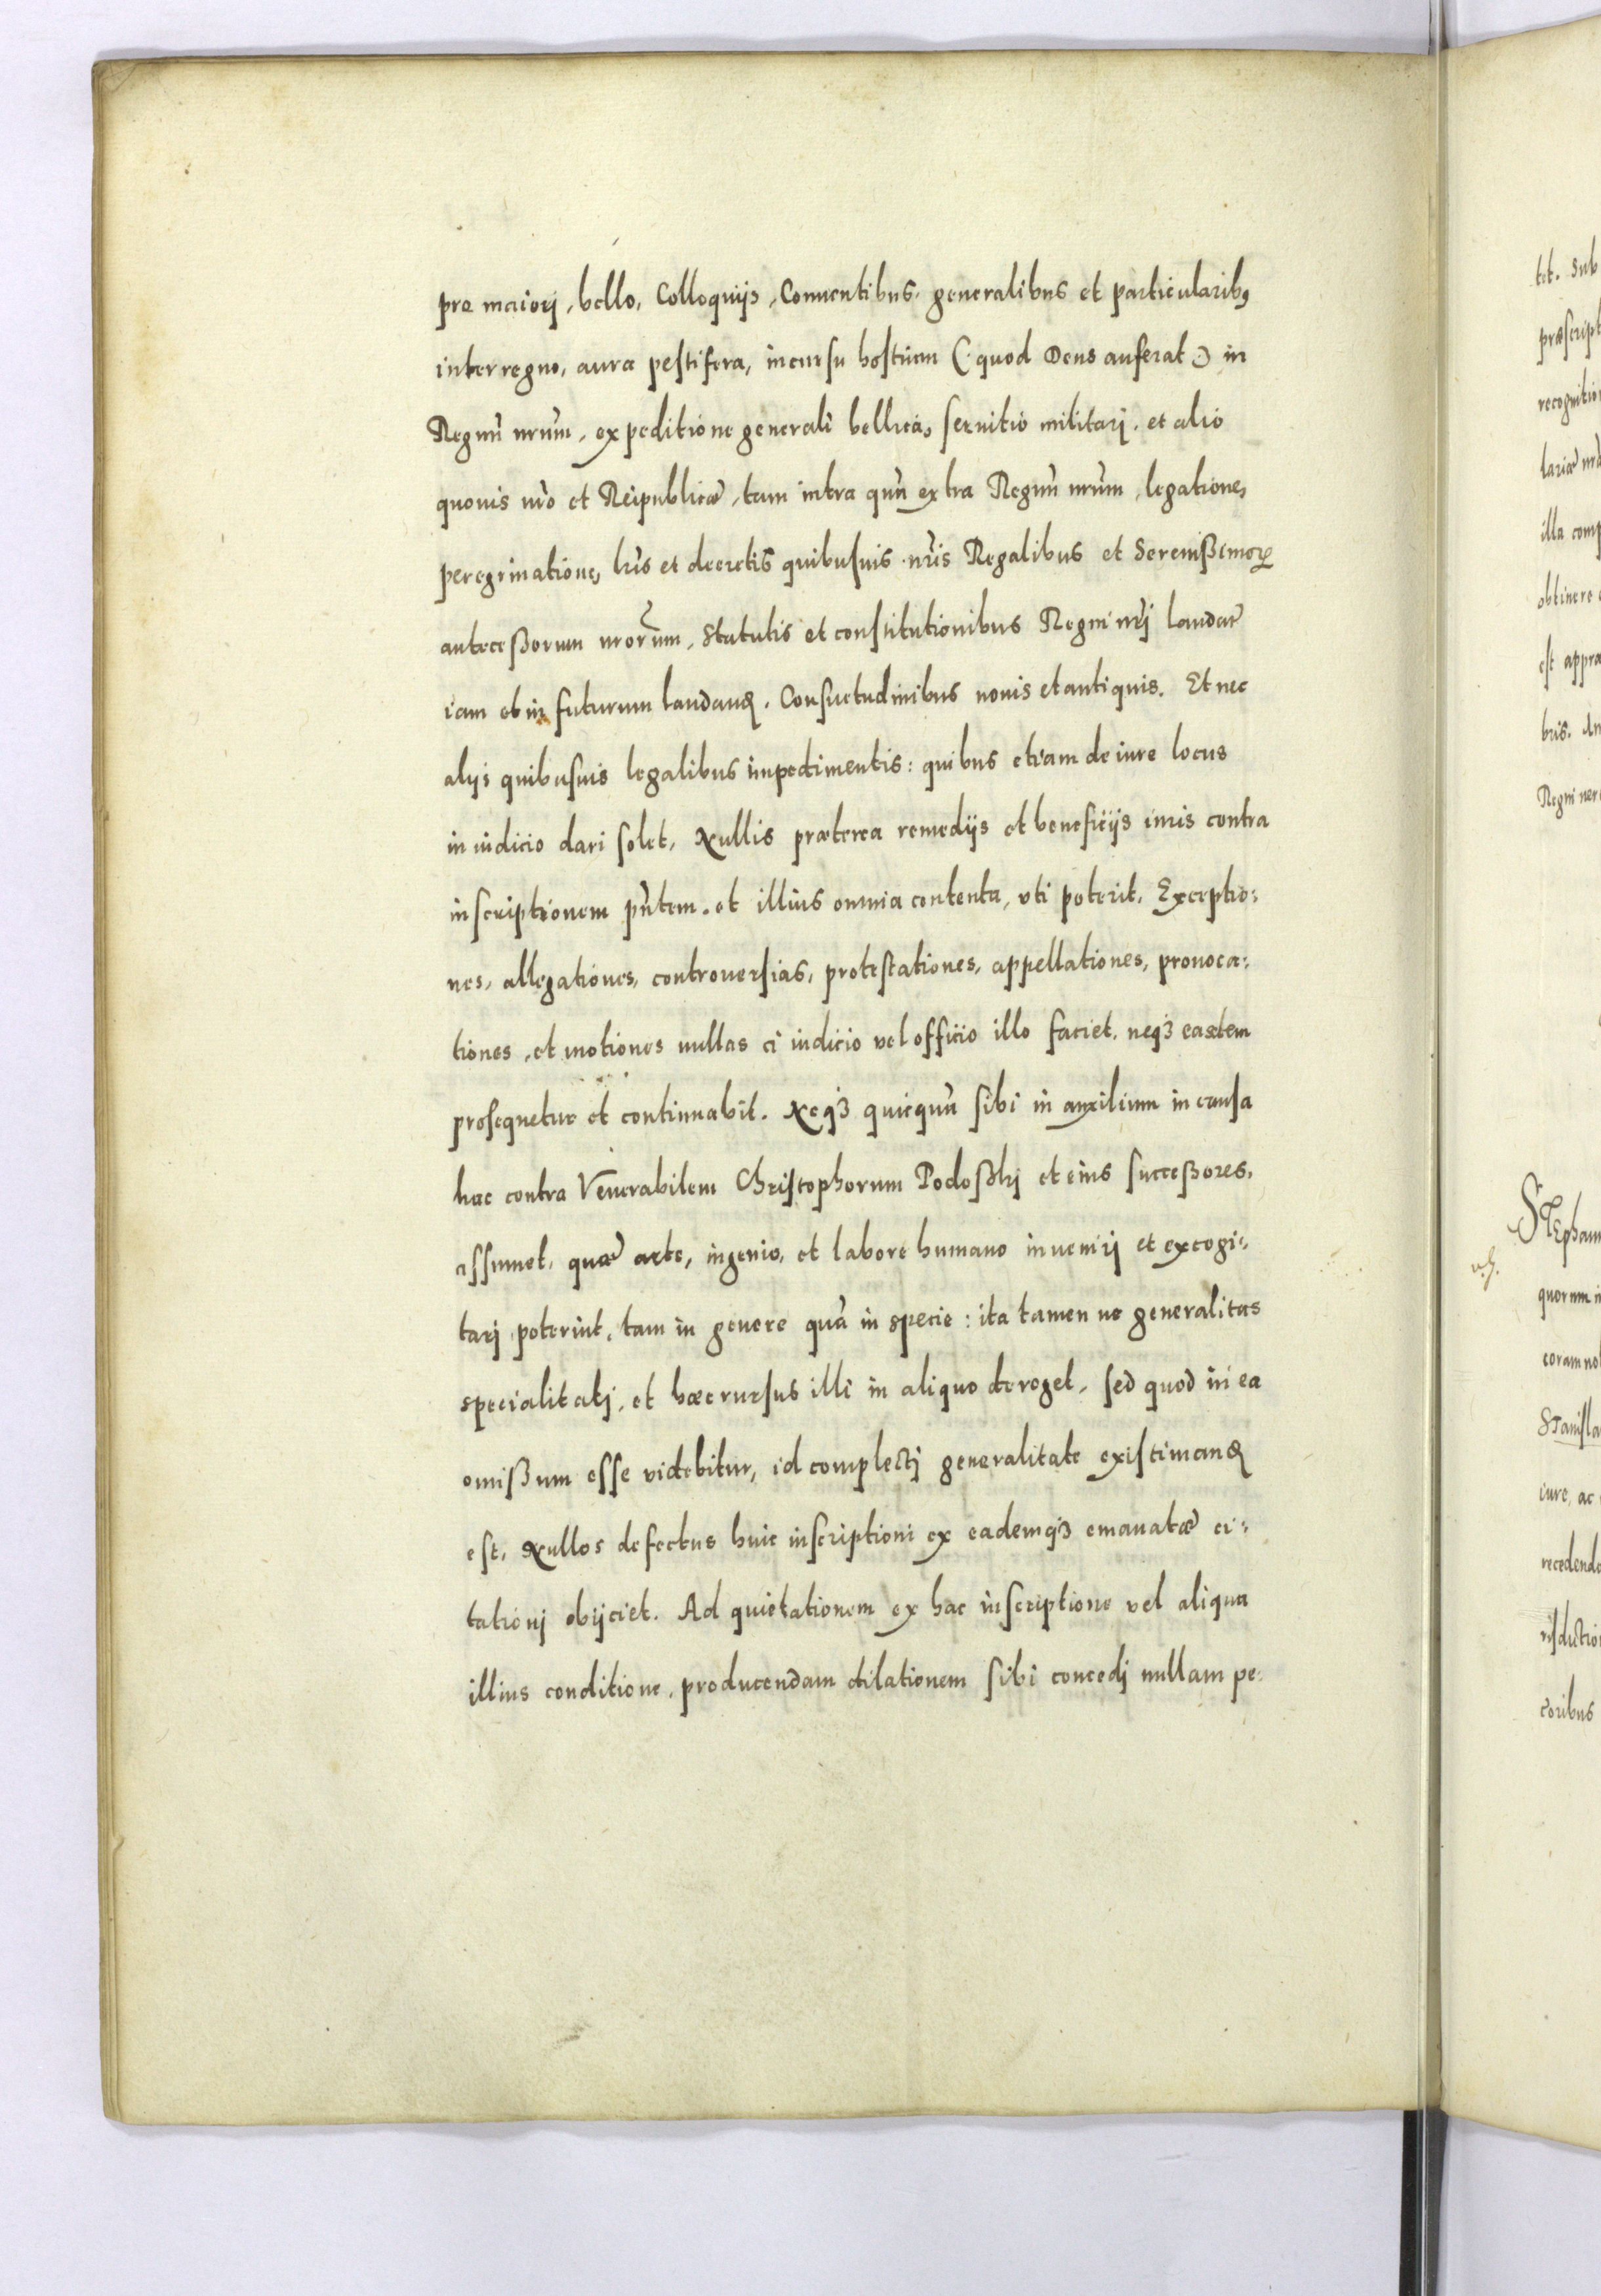 pro maiorj, bello, Colloquijs, Conuentibus generalibus et particularib9
interregno, aura pestifera, incursu hostium (: quod Deus auferat :) in
Regnũ nrũm, expeditione generali bellica, seruitio militarj. et alio
quouis nr̃o et Reipublicæ, tam intra quã extra Regnũ nrũm, legatione,
peregrinatione, lr̃is et decretis quibusuis nr̃is Regalibus et Serenißimorꝝ
anteceßorum nrorũm, Statutis et constitutionibus Regni nr̃j laudat
iam et in futurum laudanꝶ. Consuetudinibus nouis et antiquis. Et nec
alijs quibusuis legalibus impedimentis: quibus etiam de iure locus
in iudicio dari solet, Nullis præterea remedijs et beneficijs iuris contra
inscriptionem pñtem. et illius omnia contenta, vti poterit. Exceptio:
nes, allegationes, controuersias, protestationes, appellationes, prouoca:
tiones, et motiones nullas ci iudicio vel officio illo faciet. neqꝫ easdem
prosequetur et continuabit. Neqꝫ quicquã sibi in auxilium in causa
hac contra Venerabilem Christophorum Podoßkj et eius succeßores,
assumet, quæ arte, ingenio, et labore humano inuenirj et excogi:
tarj poterint, tam in genere quã in specie: ita tamen ne generalitas
specialitatj, et hæc rursus illi in aliquo deroget, sed quod in ea
omißum esse videbitur, id complectj generalitate existimanꝶ
est, Nullos defectus huic inscriptioni ex eademqꝫ emanatæ ci:
tationj obijciet. Ad quietationem ex hac inscriptione vel aliqua
illius conditione, producendam dilationem sibi concedj nullam pe:
tet. Sub
præscript
recognitio
lariæ
illa comp
obtinere
est appro
bris. An
Regni
Stephan
quorum
coram no
Stanisla
iure, ac
recedend
risdictio
toribus